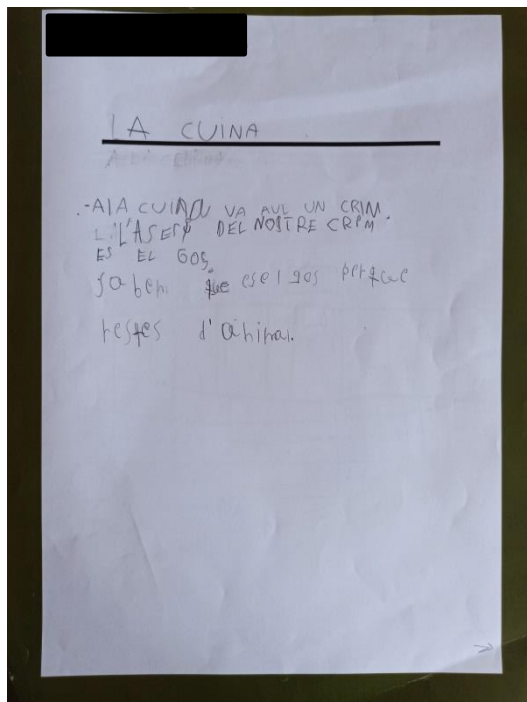 LA CUINA
-A LA CUINA VA AVE UN CRIM.
L'ASESI DEL NOSTRE CRIM
ES EL GOS.
sabem que es el gos perque
restes d'animal.